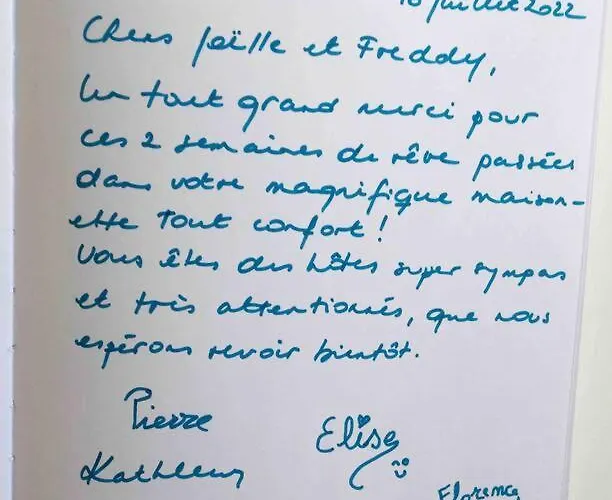 juillet 2022
Chers Joëlle et Freddy,
Un tout grand merci pour
ces 2 semaines de rêve passées
dans votre magnifique maison-
ette tout confort !
Vous êtes des hôtes super sympas
et très attentionnés, que nous
espérons revoir bientôt.
Pierre
Elisa
Kathleen
Florence